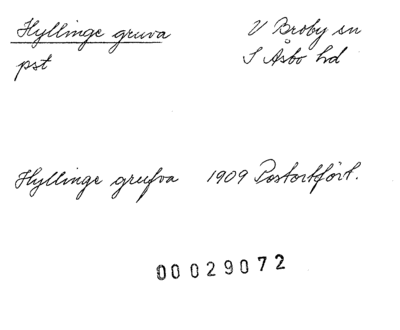 Hyllinge gruva V Broby sn
pst S Åsbo hd
Hyllinge grufva 1909 Postortfört.
00029072